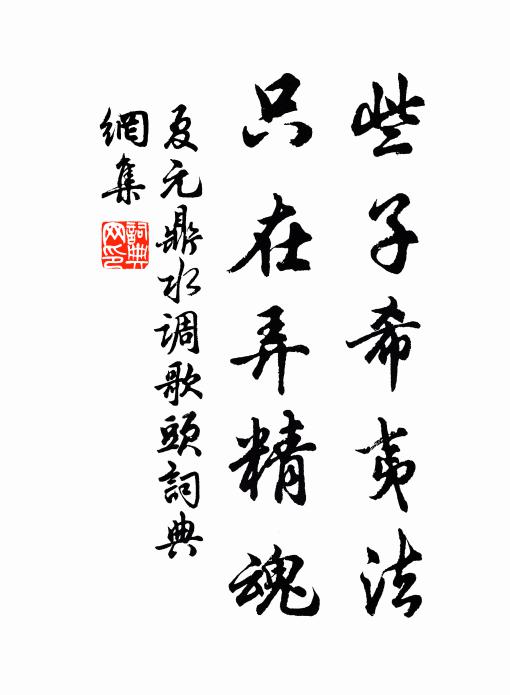 些子希夷法
只在弄精魂
夏元鼎水调歌頭詞典
網集
詞典
网印